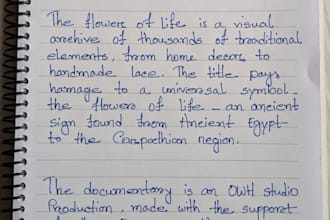 The flowers of life is a visual
archive of thousands of traditional
elements, from home decors to
handmade lace. The title pays
homage to a universal symbol -
the flowers of life - an ancient
sign found from Ancient Egypt
to the Carpathian region.
The documentary is an OWH studio
Production, made with the support